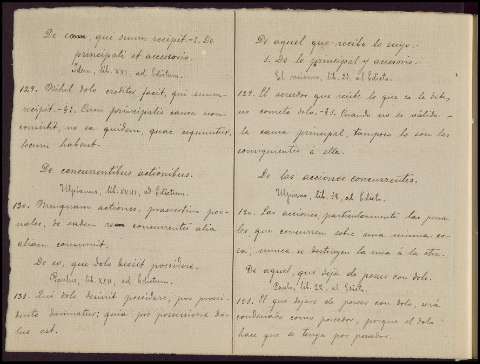 De eo, que suum recipit.-1. De
principali et accesorio.
Idem, lib. XXI, ad Edictum.
129. Nihil dolo creditor facit, qui suum
recipit.-§1. Cum principalis causa non
consistit, ne ea quidem, quae sequuntur,
locum habent.
De concurrentibus actionibus.
Ulpianus, lib. XVIII, ad Edictum.
130. Nunquam actiones, praesertim poe-
nales, de eadem re concurrentes alia
aliam consumit.
De eo, qui dolo desiit possidere.
Paulus, lib. XXII, ad Edictum.
131. Qui dolo desierit possidere, pro possi-
dente damnatur, quia pro possessione do-
lus est.
De aquel que recibe lo suyo.
1. De lo principal y accesorio.
El mismo, lib. 21, al Edicto.
129. El acreedor que recibe lo que se le debe,
no comete dolo.-§1. Cuando no es válida
la causa principal, tampoco lo son las
consiguientes á ella.
De las acciones concurrentes.
Ulpiano, lib. 18, al Edicto.
130. Las acciones, particularmente las pena-
les, que concurren sobre una misma co-
sa, nunca se destruyen la una á la otra.
De aquel, que deja de poseer con dolo.
Paulo, lib. 22, al Edicto.
131. El que dejare de poseer con dolo, será
condenado como poseedor, porque el dolo
hace que se tenga por poseedor.